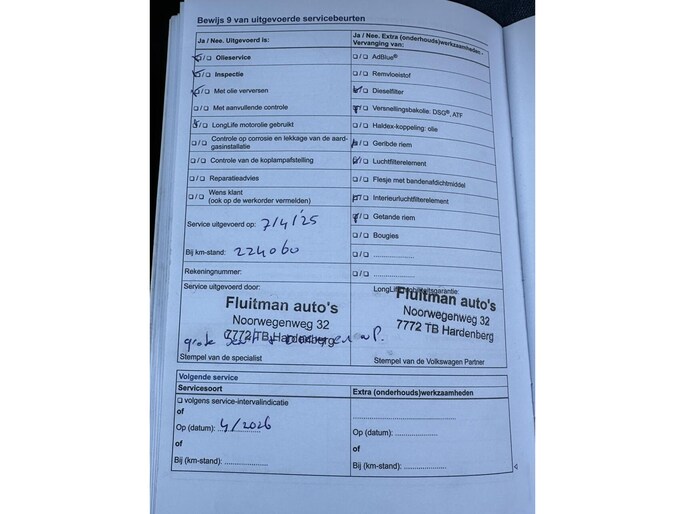 Bewijs 9 van uitgevoerde servicebeurten
Ja / Nee. Uitgevoerd Is:
Ja / Nee. Extra (onderhouds)werkzaamheden -
Vervanging van:
Olieservice
AdBlue®
Inspectie
Remvloeistof
Met olie verversen
Dieselfilter
Met aanvullende controle
Versnellingsbakolie: DSG®, ATF
LongLife motorolie gebruikt
Haldex-koppeling: olie
Controle op corrosie en lekkage van de aard-
gasinstallatie
Geribde riem
Controle van de koplampafstelling
Luchtfilterelement
Reparatieadvies
Flesje met bandenafdichtmiddel
Wens klant
(ook op de werkorder vermelden)
Interieurluchtfilterelement
Service uitgevoerd op: 7/4/'25
Getande riem
Bougies
Bij km-stand: 224060
Rekeningnummer:
Service uitgevoerd door:
Fluitman auto's
Fluitman auto's
Noorwegenweg 32
Noorwegenweg 32
7772 TB Hardenberg
7772 TB Hardenberg
Stempel van de specialist
Stempel van de Volkswagen Partner
Volgende service
Servicesoort
Extra (onderhouds)werkzaamheden
volgens service-intervalindicatie
of
Op (datum): 4/2026
Op (datum):
of
of
Bij (km-stand):
Bij (km-stand):